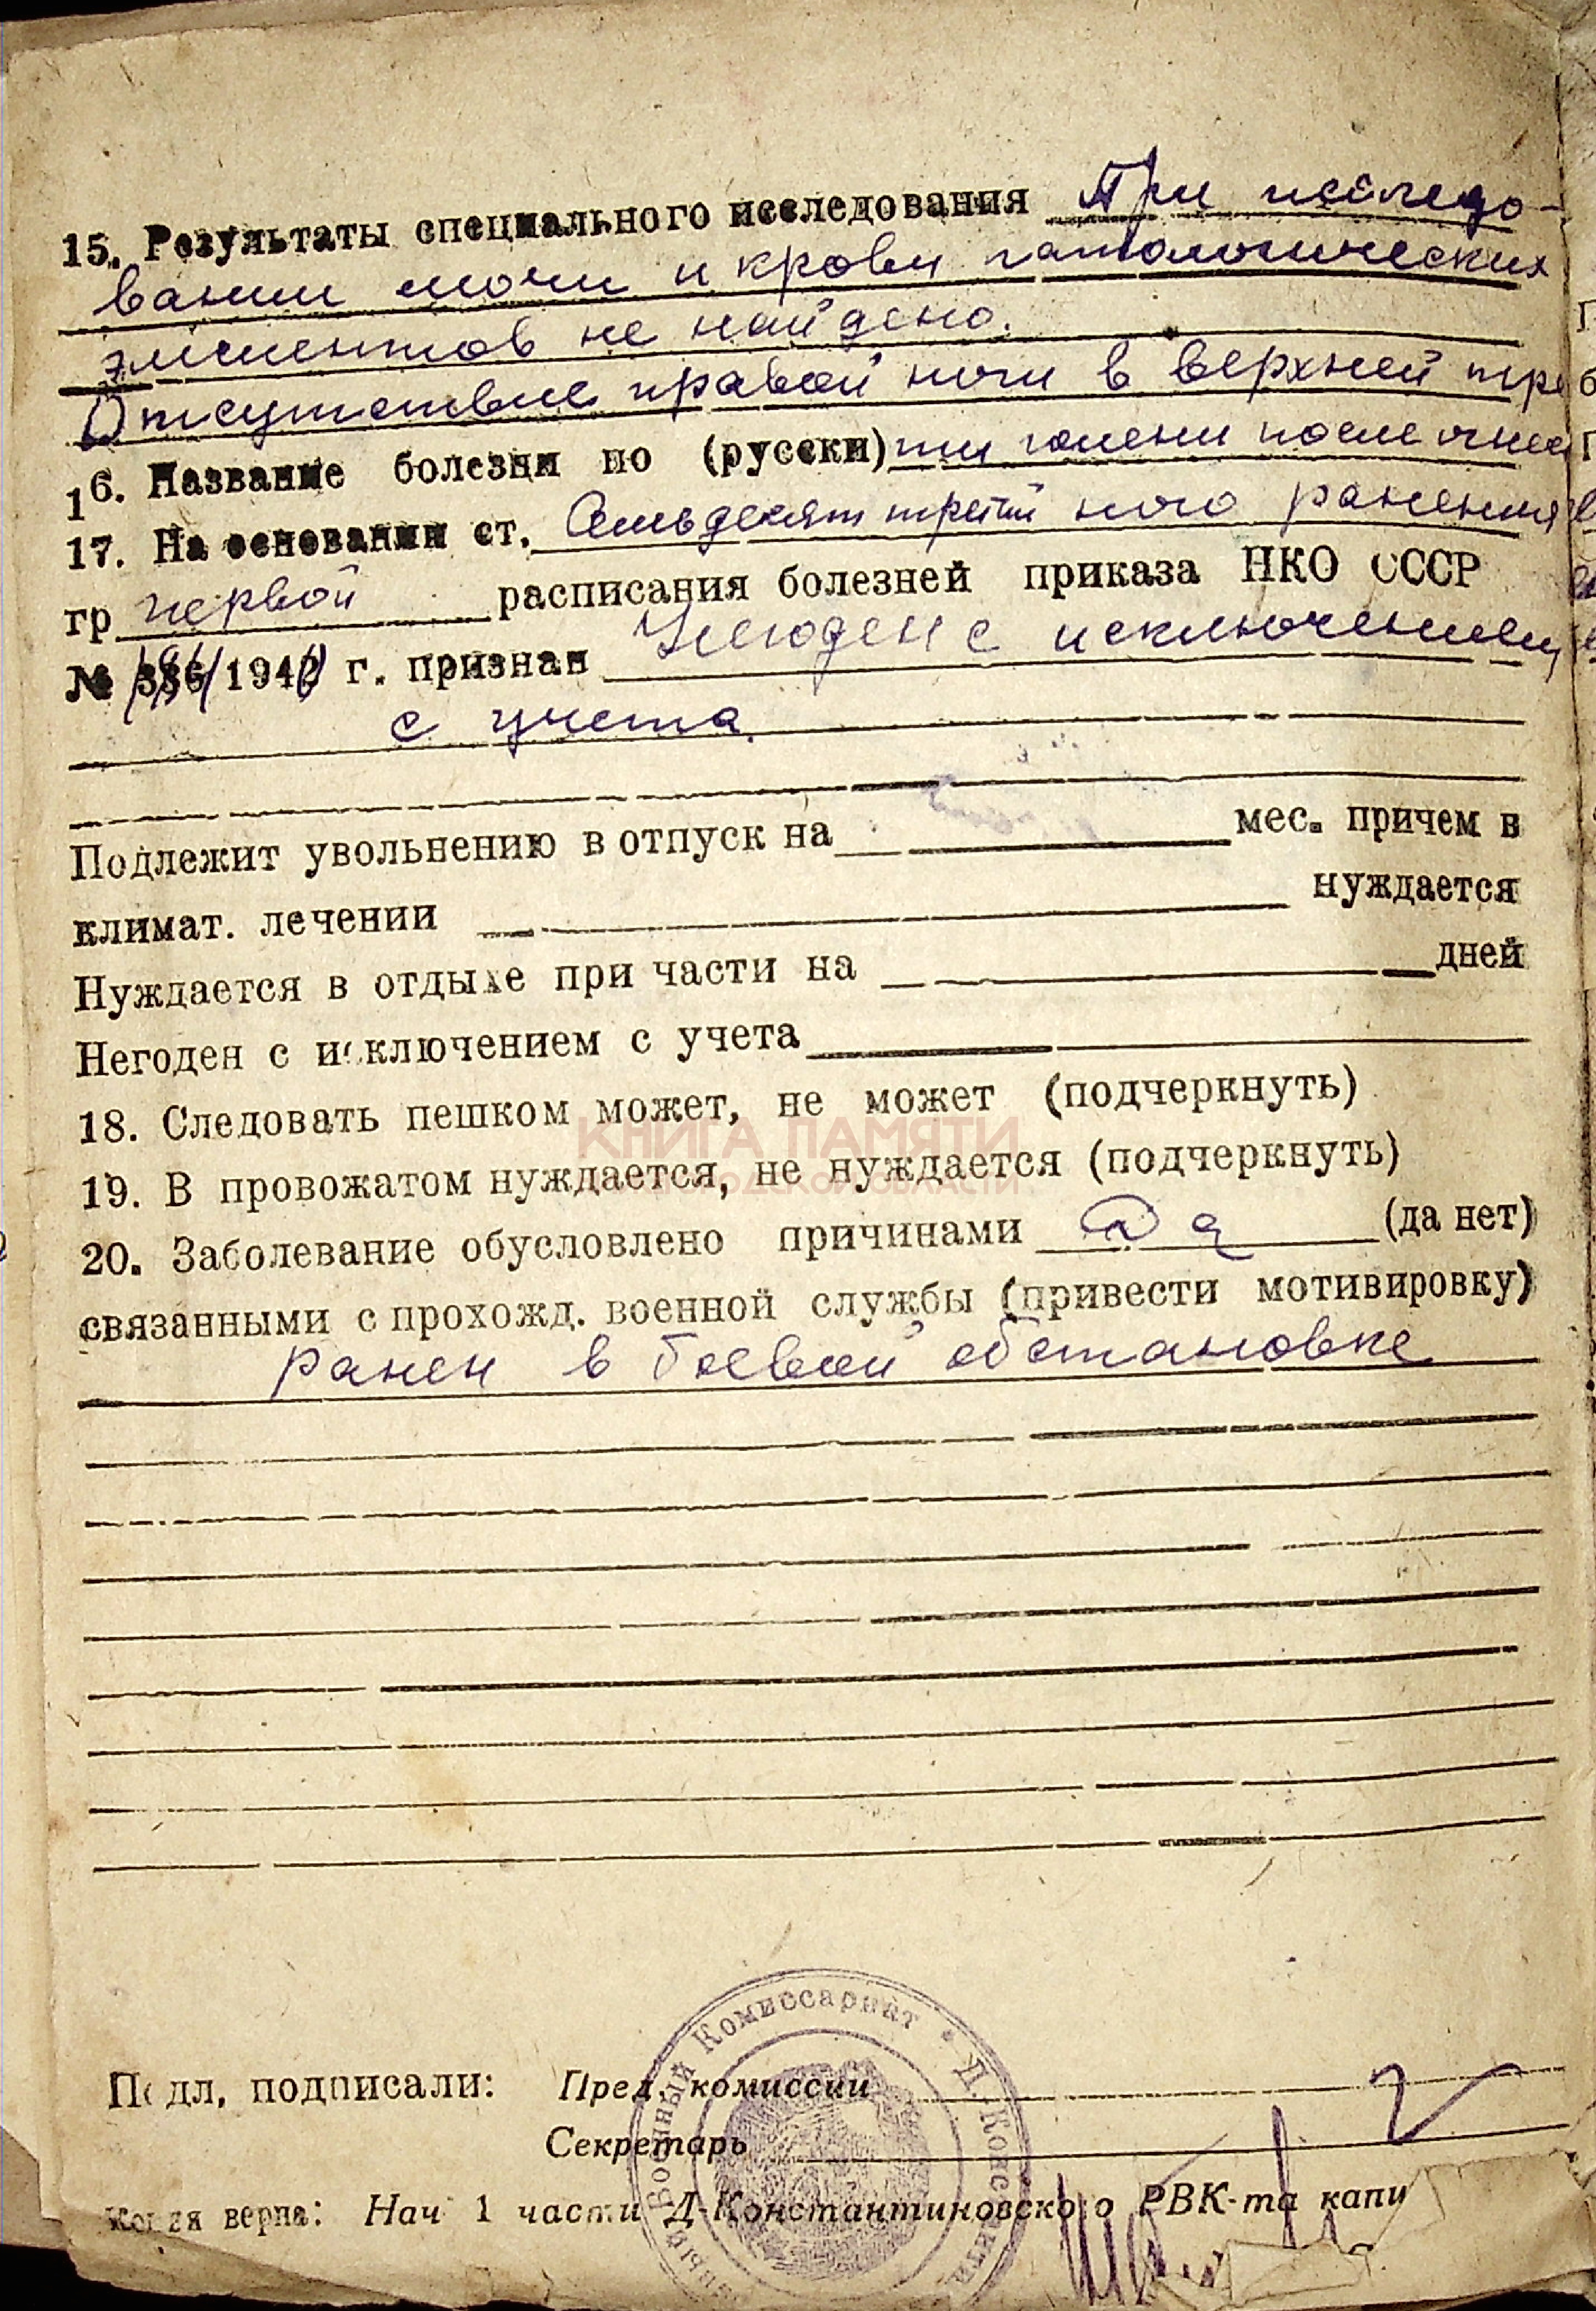 15. Результаты специального исследования При исследо-
вании мочи и крови патологических
элементов не найдено.
Отсутствие правой ноги в верхней тре
16. Название болезни по (русски) ти голени после огнес
17. На основании ст. Семьдесят третьй ного ранения
гр первой расписания болезней приказа НКО СССР
№ 194 г. признан Негоден с исключением
с учета.
Подлежит увольнению в отпуск на мес. причем в
климат. лечении нуждается
Нуждается в отдыхе при части на дней
Негоден с исключением с учета
18. Следовать пешком может, не может (подчеркнуть)
КНИГА ПАМЯТИ
19. В провожатом нуждается, не нуждается (подчеркнуть)
20. Заболевание обусловлено причинами Да (да нет)
связанными с прохожд. военной службы (привести мотивировку)
ранен в боевой обстановке
Военный Комиссариат • Д. Конс
Подл, подписали: Пред. комиссии
Секретарь
Копия верна: Нач 1 части Д-Константиновского РВК-та капи